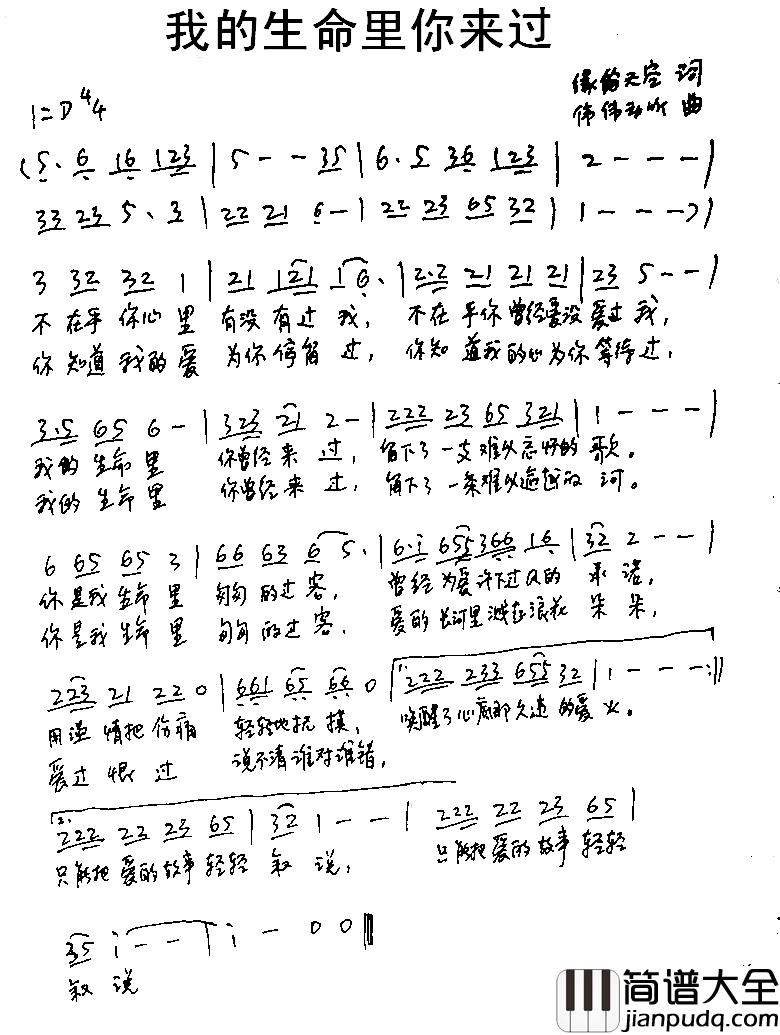 我的生命里你来过
缘的天空 词
1=D 4/4
伟伟 曲
(5. 6 16 123 | 5 - - 35 | 6. 5 36 123 | 2 - - - |
33 23 5. 3 | 22 21 6 - | 22 23 65 32 | 1 - - -)|
3 32 32 1 | 21 121 16. | 2.2 21 21 21 | 23 5 - - |
不在乎你心里 有没有过我, 不在乎你曾经爱没爱过我,
你知道我的爱 为你停留过, 你知道我的心为你等待过,
3.5 65 6 - | 323 21 2 - | 222 23 65 321 | 1 - - - |
我的生命里 你曾经来过, 留下了一支难以忘怀的歌。
我的生命里 你曾经来过, 留下了一条难以逾越的河。
6 65 65 3 | 66 63 6 5. | 6.i 655 366 16 | 32 2 - - |
你是我生命里 匆匆的过客, 曾经为爱许下过的承诺,
你是我生命里 匆匆的过客, 爱的长河里溅在浪花朵朵,
223 21 22 0 | 661 65 66 0 | 1. 222 233 655 32 | 1 - - - :||
用温情把伤痛 轻轻地抚摸, 唤醒了心底那久违的爱火。
爱过恨过 说不清谁对谁错,
2. 222 23 23 65 | 32 1 - - | 222 22 23 65 |
只能把爱的故事轻轻叙说, 只能把爱的故事轻轻
35 i - - | i - 0 0 ‖
叙说
简谱大全
jianpudq.com